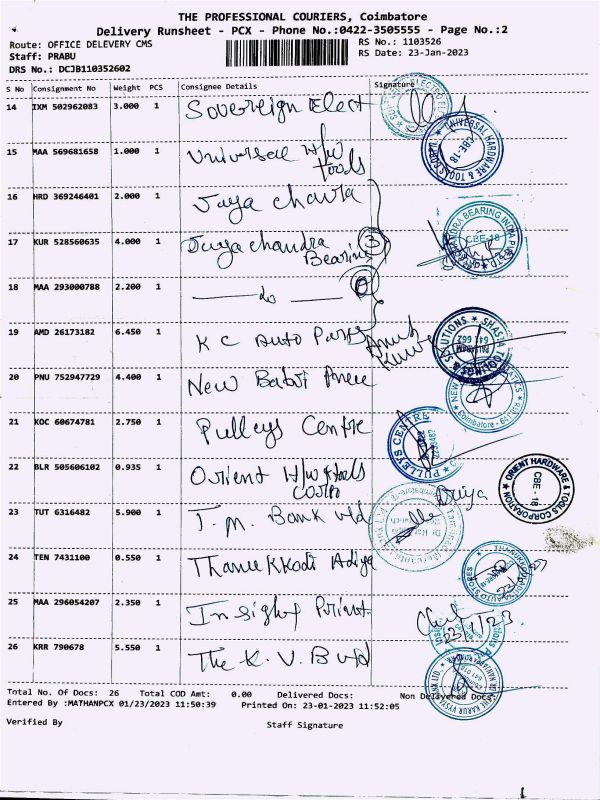 THE PROFESSIONAL COURIERS, Coimbatore
Delivery Runsheet - PCX - Phone No.:0422-3505555 - Page No.:2
Route: OFFICE DELEVERY CMS RS No.: 1103526
Staff: PRABU RS Date: 23-Jan-2023
DRS No.: DCJB110352602
S No Consignment No Weight PCS Consignee Details Signature
14 IXM 502962083 3.000 1 Sovereign Elect
15 MAA 569681658 1.000 1 Universal H/w Tools
UNIVERSAL HARDWARE & TOOLS CBE-18
16 HRD 369246401 2.000 1 Jaya Chandra
17 KUR 528560635 4.000 1 Jaya chandra Bearing 3
BEARING INDIA CBE-18
18 MAA 293000788 2.200 1 do
19 AMD 26173182 6.450 1 K C Auto Parts
TOOLINGS & SOLUTIONS ★ SHASTI
20 PNU 752947729 4.400 1 New
NEW Coimbatore
21 KOC 60674781 2.750 1 Pulleys Centre
PULLEYS CENTRE
22 BLR 505606102 0.935 1 Orient H/w & Tools Corpn
ORIENT HARDWARE & TOOLS CORPORATION CBE - 18
23 TUT 6316482 5.900 1 T. M. Bank Ltd
24 TEN 7431100 0.550 1 Thanukkodi
25 MAA 296054207 2.350 1 Insight Print
23/1/23
26 KRR 790678 5.550 1 The K. V. B Ltd
Total No. Of Docs: 26 Total COD Amt: 0.00 Delivered Docs: Non Delivered Docs:
Entered By :MATHANPCX 01/23/2023 11:50:39 Printed On: 23-01-2023 11:52:05
Verified By Staff Signature